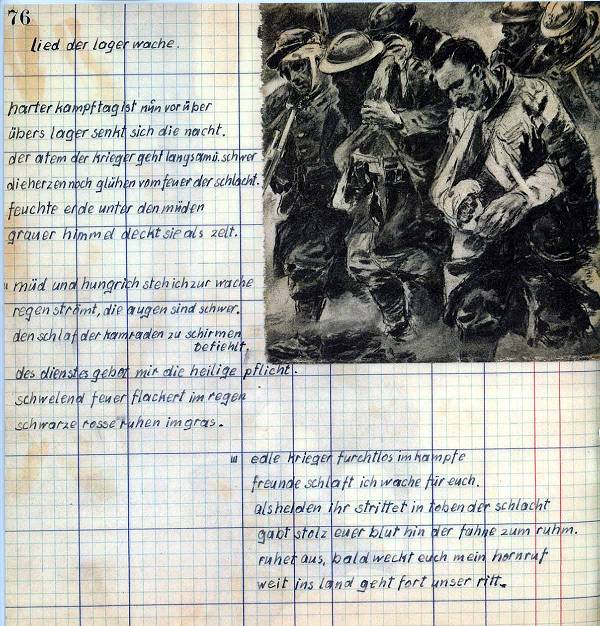 76
lied der lagerwache.
harter kampftag ist nün vorüber
übers lager senkt sich die nacht.
der atem der krieger geht langsam ü. schwer
die herzen noch glühen vom feuer der schlacht.
feuchte erde unter den müden
grauer himmel deckt sie als zelt.
II müd und hungrich steh ich zur wache
regen strömt, die augen sind schwer.
den schlaf der kamraden zu schirmen
befiehlt,
des dienstes gebot mir die heilige pflicht.
schwelend feuer flackert im regen
schwarze rosse ruhen im gras.
III edle krieger furchtlos im kampfe
freunde schlaft ich wache für euch.
als helden ihr strittet in toben der schlacht
gabt stolz euer blut hin der fahne zum ruhm.
ruhet aus, bald weckt euch mein hornruf
weit ins land geht fort unser ritt.